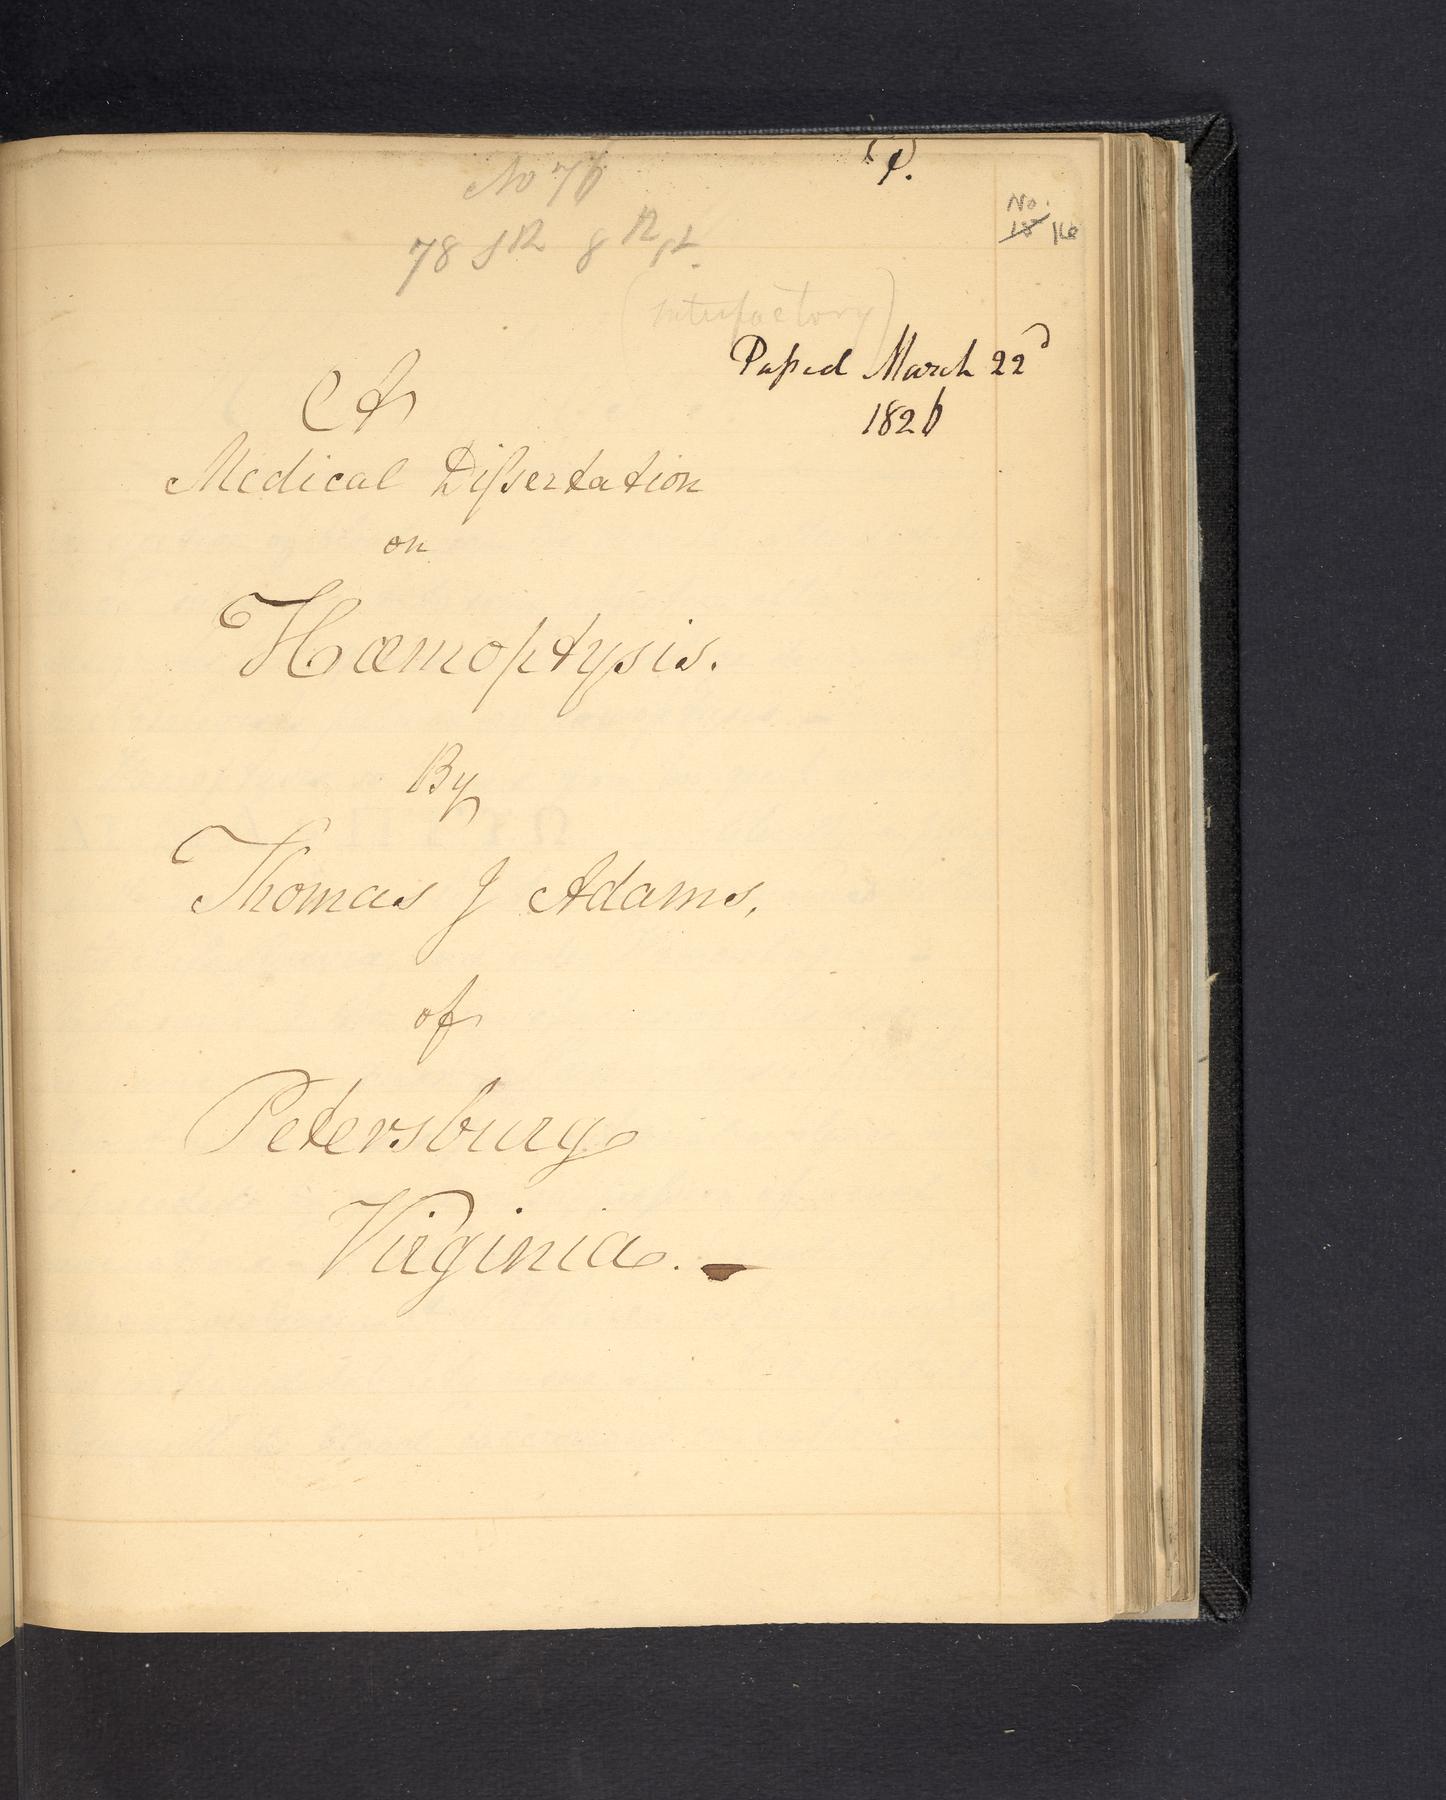 No 76
No.
18 16
(Satisfactory)
Paſsed March 22d
1826
A
Medical Diſsertation
on
Hæmoptysis.
By
Thomas J Adams,
of
Petersburg
Virginia. —